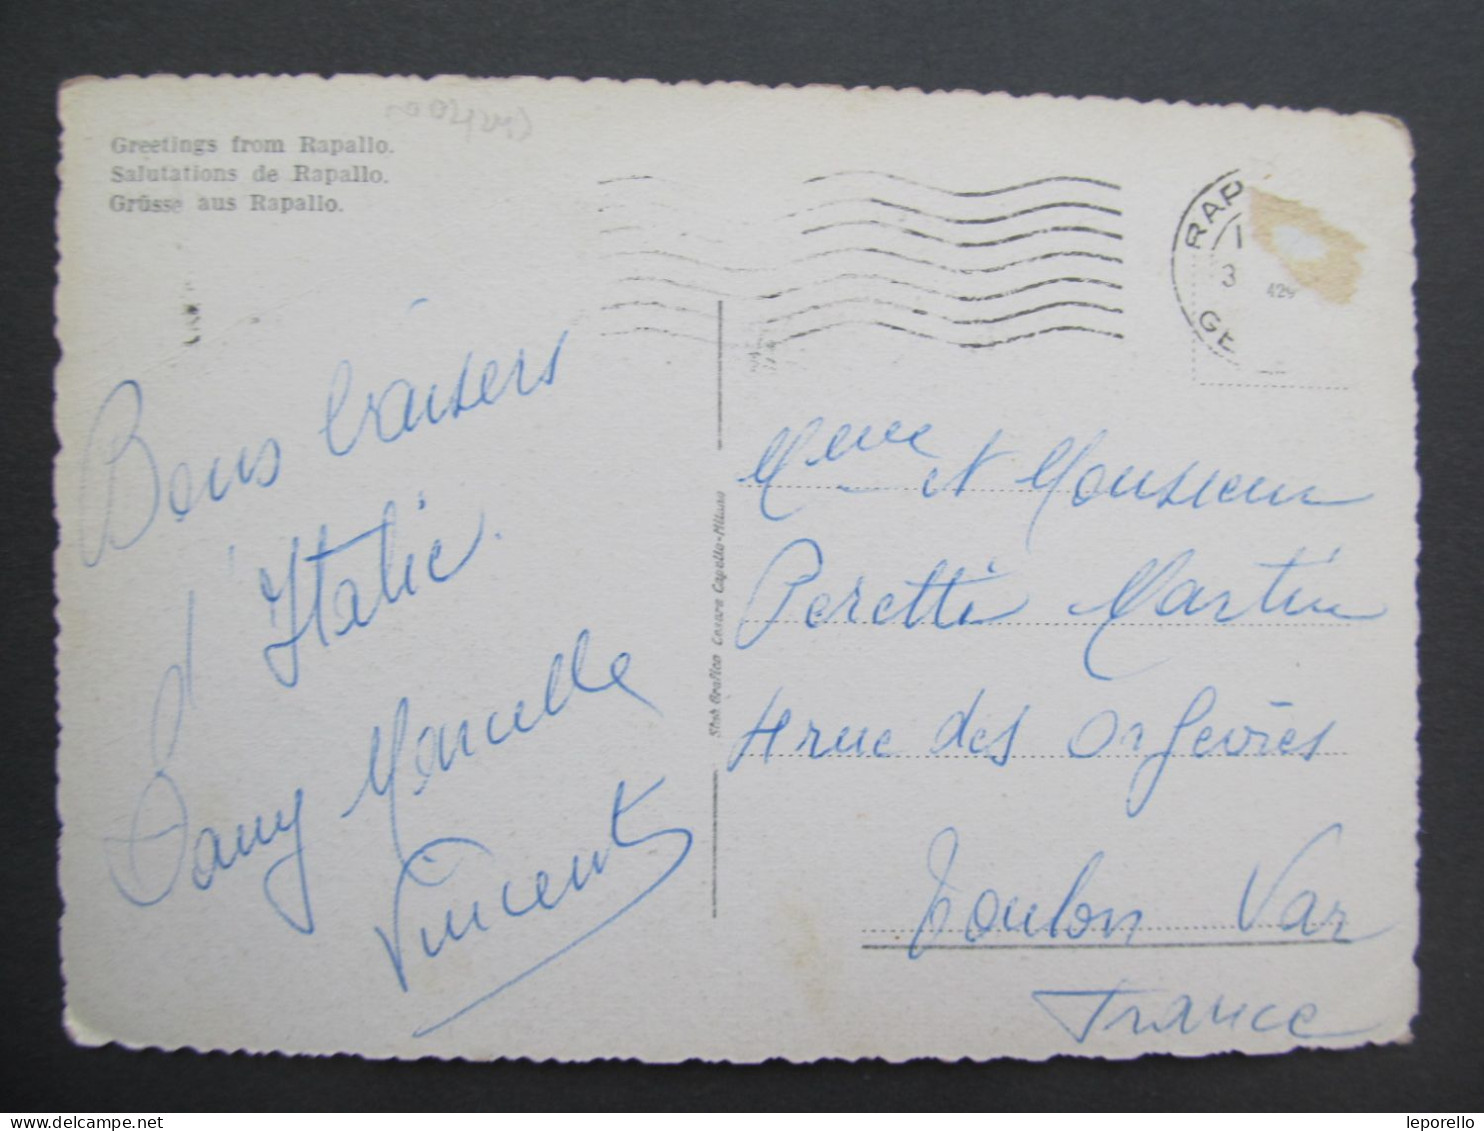 Greetings from Rapallo.
Salutations de Rapallo.
Grüsse aus Rapallo.
RAP
3
429
GE
Bons baisers
d'Italie.
Dany Marcelle
Vincent
Stab. Grafico Cesare Capello - Milano
Mme et Monsieur
Peretti Martin
4 rue des Orfevres
Toulon Var
France
www.delcampe.net
leporello